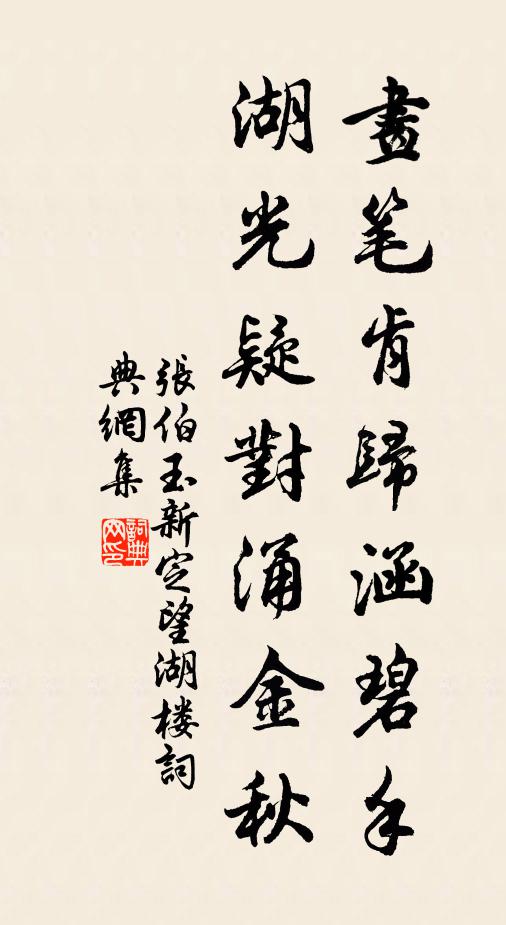 畫笔肯歸涵碧手
湖光疑對涌金秋
張伯玉新定望湖楼詞
典網集
詞典网印